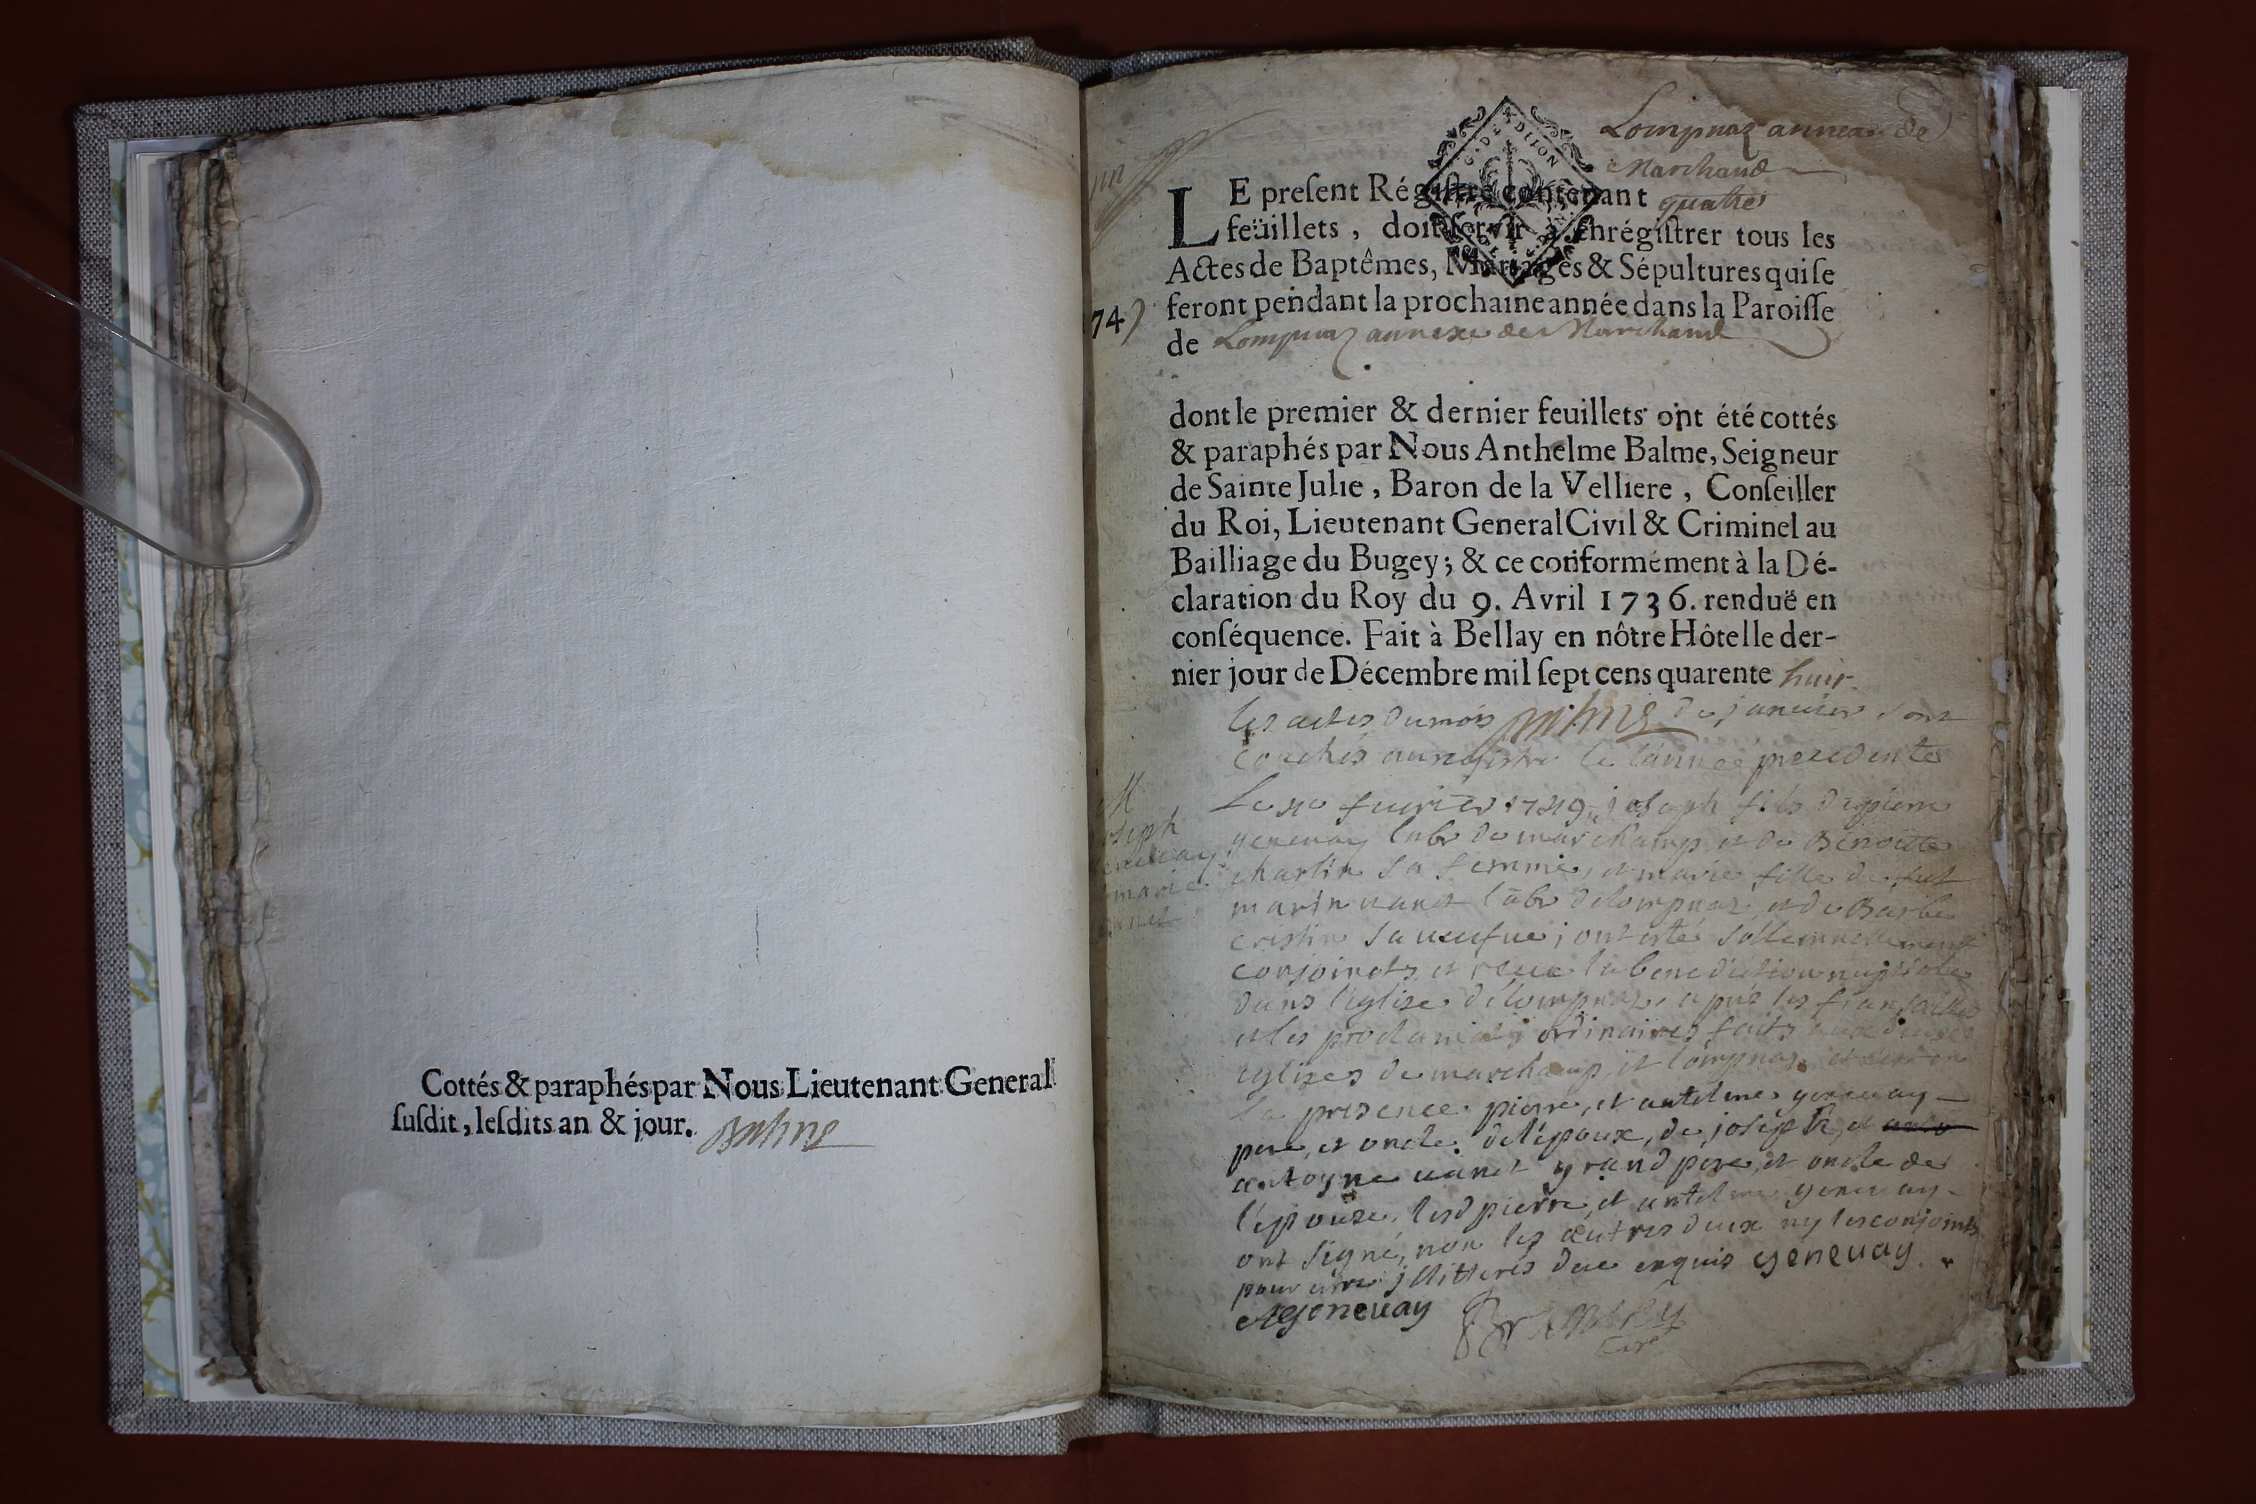 Cottés & paraphés par Nous Lieutenant General
ſuſdit, leſdits an & jour. Balme
Lompnaz annexe de
Marchand
LE preſent Régiſtre contenant quatre
feüillets, doit ſervir à enrégiſtrer tous les
Actes de Baptêmes, Mariages & Sépultures qui ſe
feront pendant la prochaine année dans la Paroiſſe
74)
de Lompnaz annexe de Marchand
dont le premier & dernier feuillets ont été cottés
& paraphés par Nous Anthelme Balme, Seigneur
de Sainte Julie, Baron de la Velliere, Conſeiller
du Roi, Lieutenant General Civil & Criminel au
Bailliage du Bugey; & ce conformément à la Dé-
claration du Roy du 9. Avril 1736. renduë en
conſéquence. Fait à Bellay en nôtre Hôtel le der-
nier jour de Décembre mil ſept cens quarente huit
les actes du mois Balme de janvier sont
couchés au registre de l'année precedente
Le fevrier 1749, joseph fils de pierre
genevay labr de marchamp et de Benoite
charlin sa femme, et marie fille de fut
marin vanet labr de lompnaz, et de Barbe
cristin sa veufue; ont esté sollemnellement
conjoincts et receu la benediction nuptiale
dans l'eglise de lompnaz, aprés les fiansailles
et les proclamaõns ordinaires faits aux deux
eglizes de marchamp, et lompnaz, et
la presence pierre, et antelme genevay
pere, et oncle de l'époux, de joseph, et
antoyne vanet grand pere, et oncle de
l'épouze, lesd pierre, et antelme genevay
ont signé, non les autres deux ny les conjoints
pour etre jllitterés deue enquis genevay.
A genevay